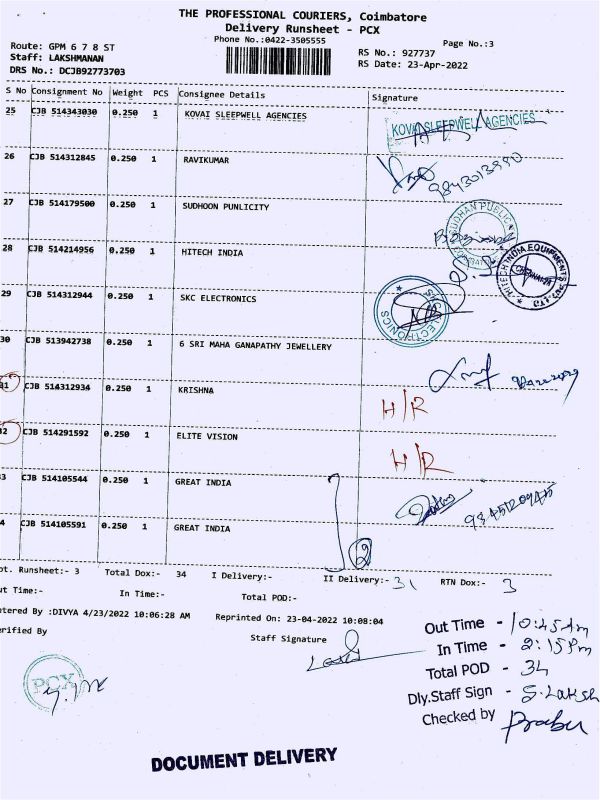 THE PROFESSIONAL COURIERS, Coimbatore
Delivery Runsheet - PCX
Phone No.:0422-3505555
Page No.:3
Route: GPM 6 7 8 ST
RS No.: 927737
Staff: LAKSHMANAN
RS Date: 23-Apr-2022
DRS No.: DCJB92773703
S No Consignment No Weight PCS Consignee Details Signature
25 CJB 514343030 0.250 1 KOVAI SLEEPWELL AGENCIES
KOVAI SLEEPWELL AGENCIES
26 CJB 514312845 0.250 1 RAVIKUMAR
27 CJB 514179500 0.250 1 SUDHOON PUNLICITY
28 CJB 514214956 0.250 1 HITECH INDIA
29 CJB 514312944 0.250 1 SKC ELECTRONICS
SKC ELECTRONICS
30 CJB 513942738 0.250 1 6 SRI MAHA GANAPATHY JEWELLERY
31 CJB 514312934 0.250 1 KRISHNA H/R
32 CJB 514291592 0.250 1 ELITE VISION H/R
3 CJB 514105544 0.250 1 GREAT INDIA
4 CJB 514105591 0.250 1 GREAT INDIA
2
pt. Runsheet:- 3 Total Dox:- 34 I Delivery:- II Delivery:- 31 RTN Dox:- 3
ut Time:- In Time:- Total POD:-
tered By :DIVYA 4/23/2022 10:06:28 AM Reprinted On: 23-04-2022 10:08:04
erified By Staff Signature
Out Time - 10:45Am
In Time - 2:15Pm
Total POD - 34
Dly.Staff Sign - S.Laksh
Checked by Prabu
PCX
DOCUMENT DELIVERY